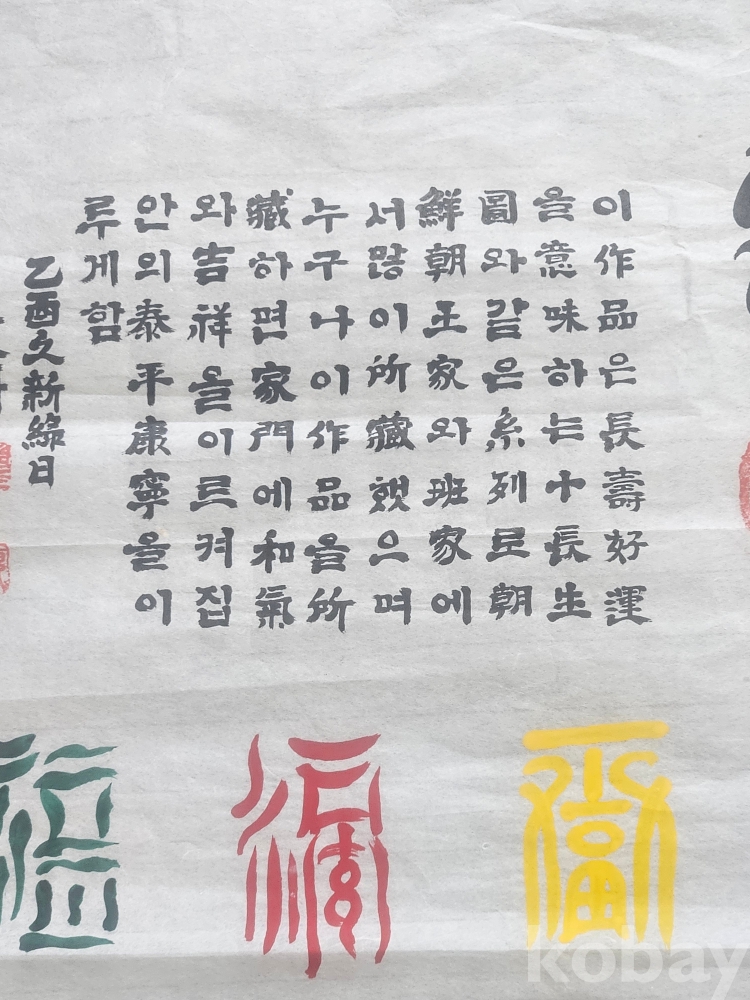 이作品은長壽好運
을意味하는十長生
圖와같은系列로朝
鮮朝王家와班家에
서많이所藏했으며
누구나이作品을所
藏하면家門에和氣
와吉祥을이르켜집
안의泰平康寧을이
루게함
乙酉 新綠日
kobay